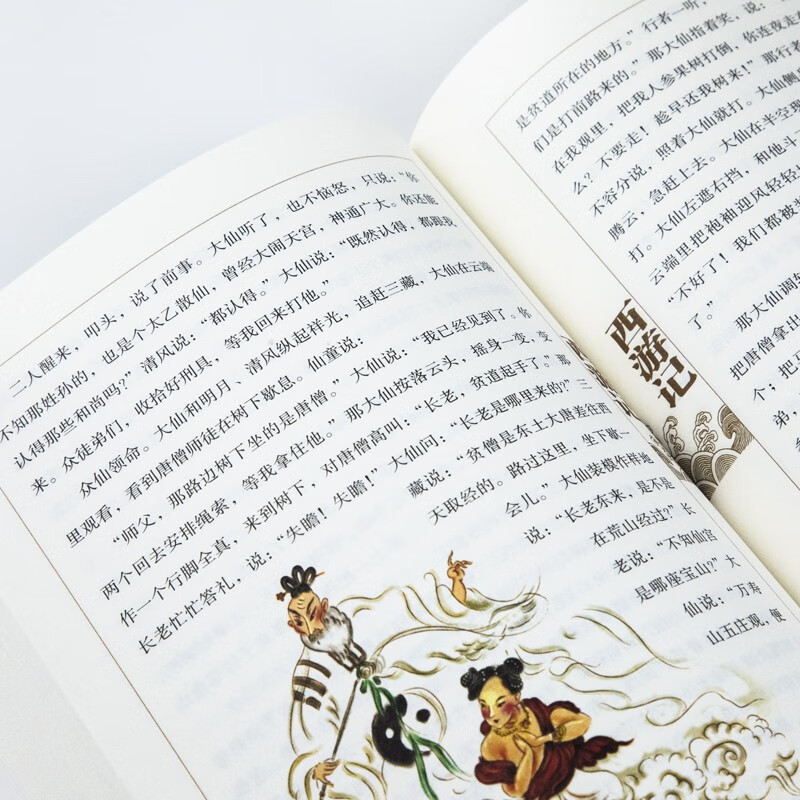 二人醒来，叩头，说了前事。大仙听了，也不恼怒，只说：“你
不知那姓孙的，也是个太乙散仙，曾经大闹天宫，神通广大。你还能
认得那些和尚吗？”清风说：“都认得。”大仙说：“既然认得，都跟我
来。众徒弟们，收拾好刑具，等我回来打他。”
众仙领命。大仙和明月、清风纵起祥光，追赶三藏，大仙在云端
里观看，看到唐僧师徒在树下歇息。仙童说：
“师父，那路边树下坐的是唐僧。”大仙说：“我已经见到了。你
两个回去安排绳索，等我拿住他。”那大仙按落云头，摇身一变，变
作一个行脚全真，来到树下，对唐僧高叫：“长老，贫道起手了。”那
长老忙忙答礼，说：“失瞻！失瞻！”大仙问：“长老是哪里来的？”三
藏说：“贫僧是东土大唐差往西
天取经的。路过这里，坐下歇一
会儿。”大仙装模作样地
说：“长老东来，是不是
在荒山经过？”长
老说：“不知仙宫
是哪座宝山？”大
仙说：“万寿
山五庄观，便
是贫道所在的地方。”行者一听，
们是打前路来的。”那大仙指着笑，说：“
在我观里，把我人参果树打倒，你连夜走在
么？不要走！趁早还我树来！”那行者
不容分说，照着大仙就打。大仙侧
腾云，急赶上去。大仙在半空现
打。大仙左遮右挡，和他斗
云端里把袍袖迎风轻轻
“不好了！我们都被
了。”
那大仙调
把唐僧拿出
个；把
弟，
西游记